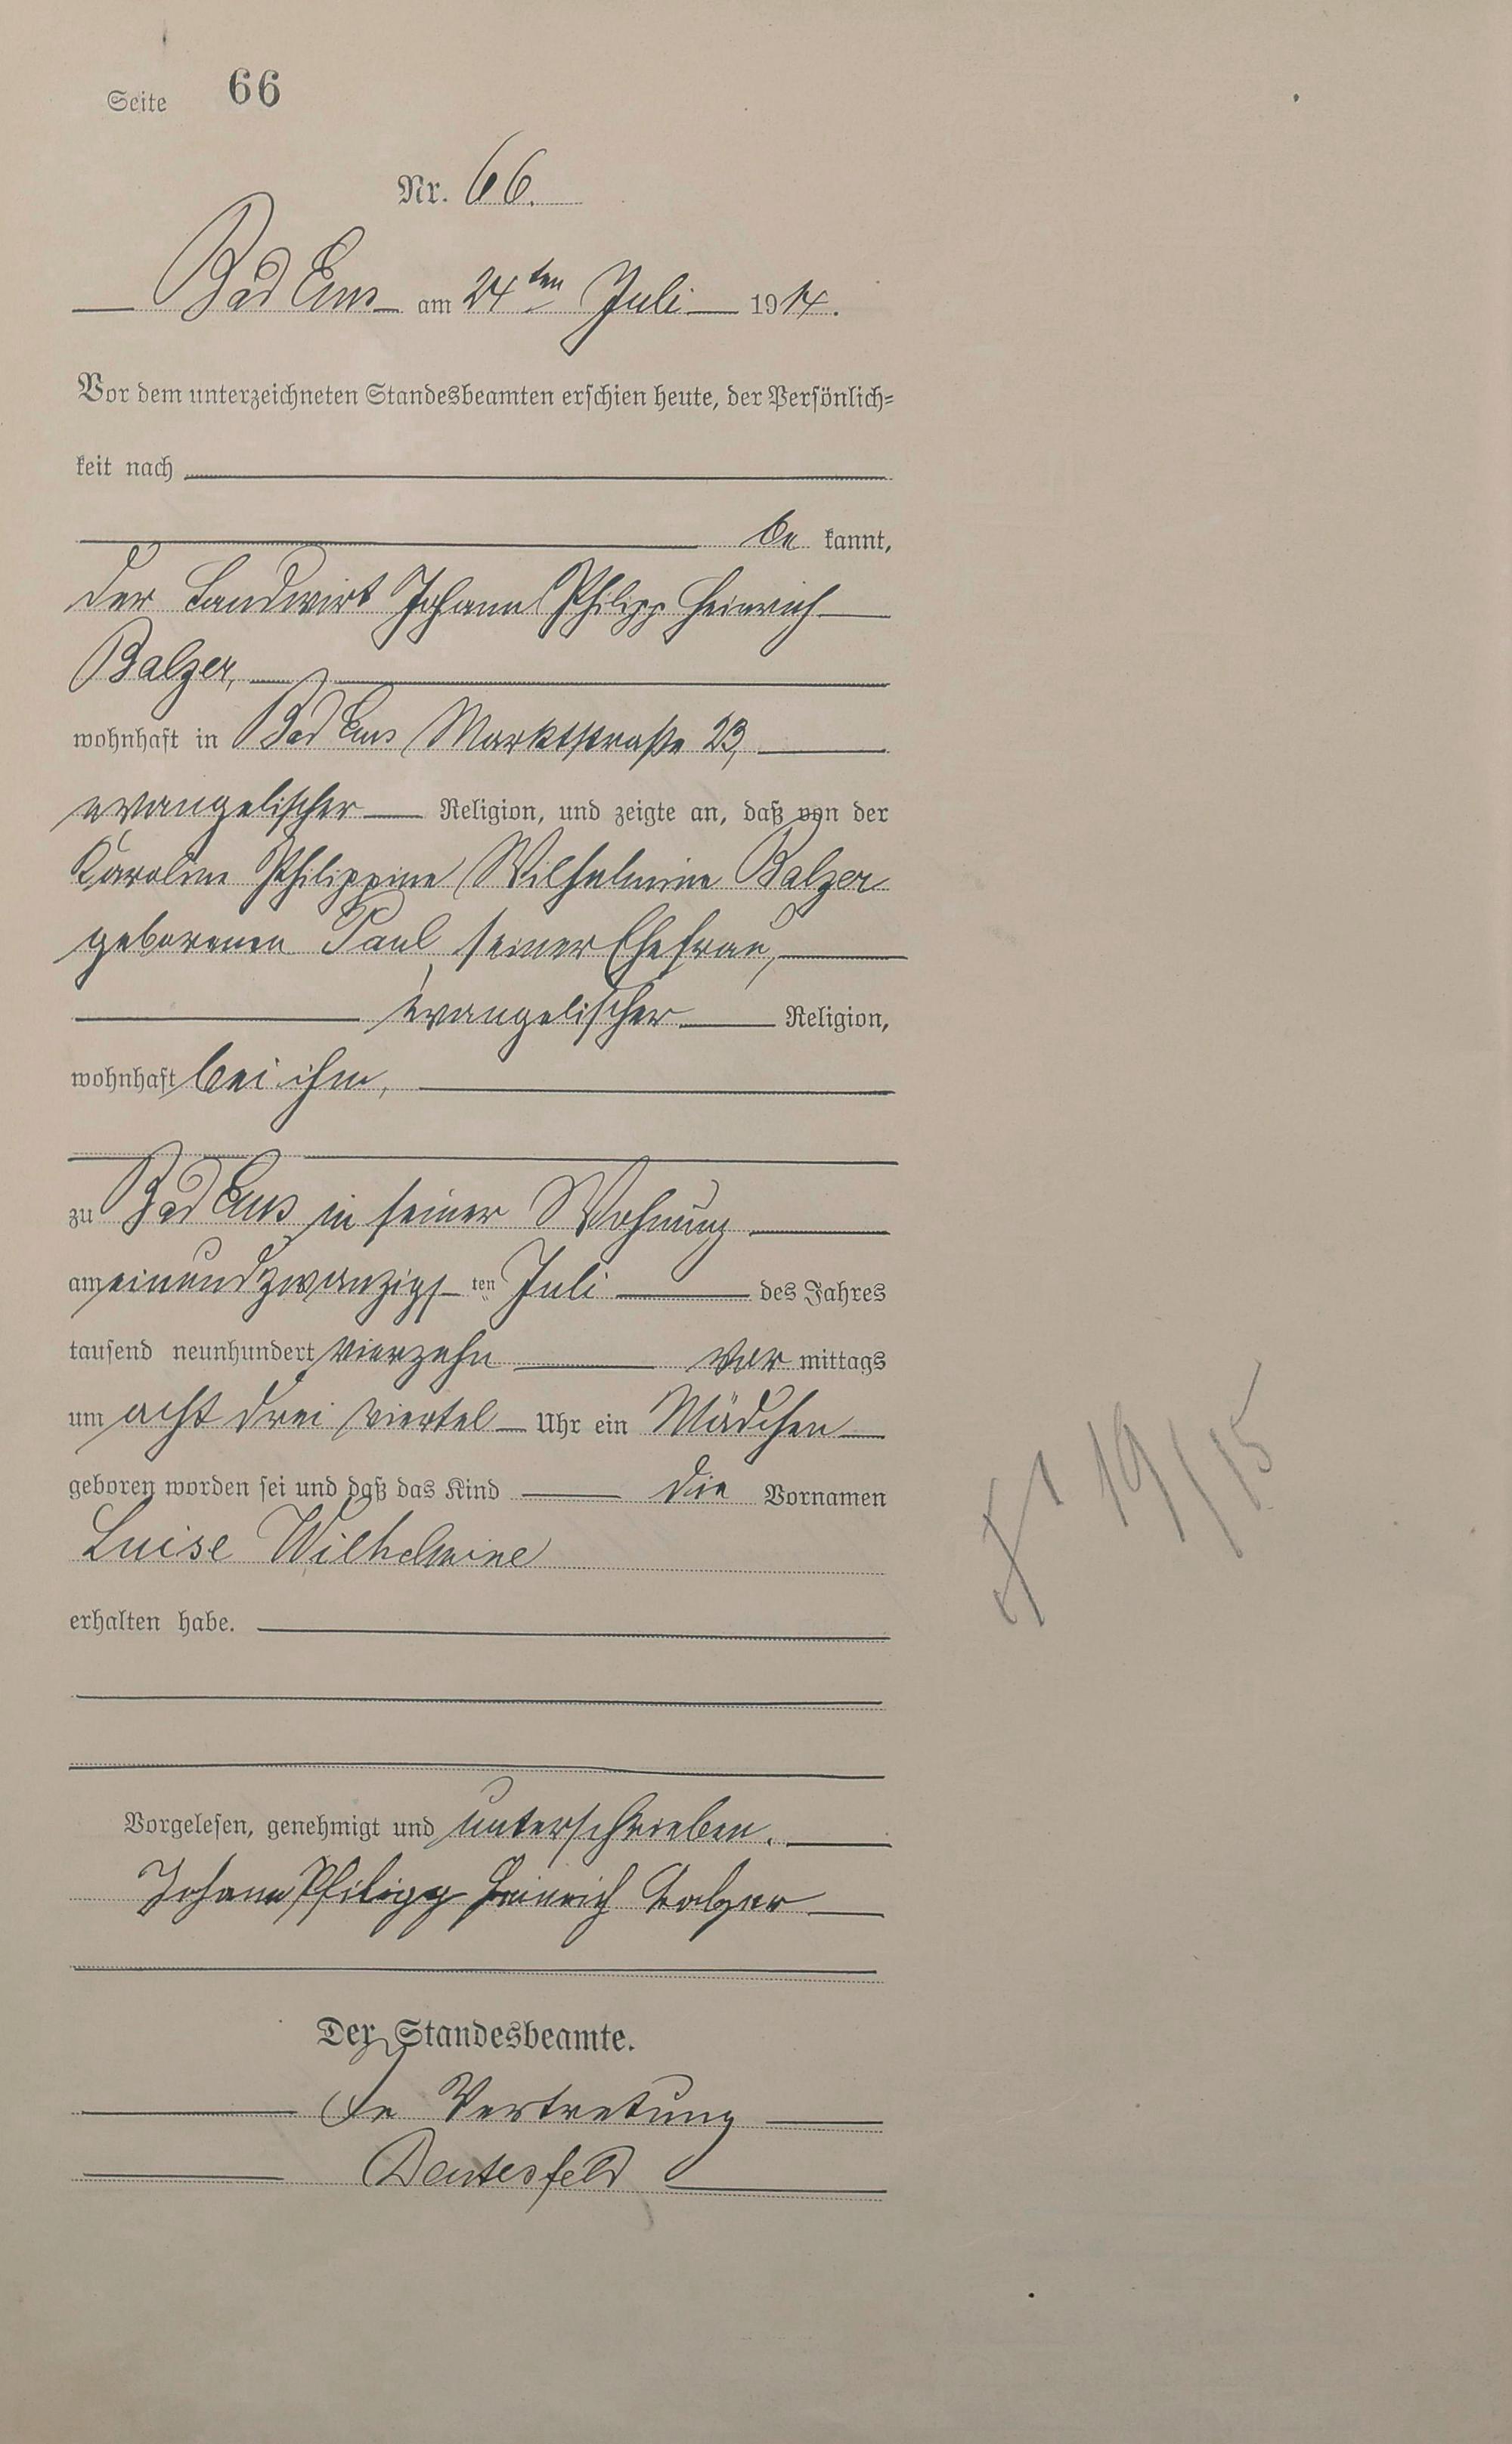 Seite 66
Nr. 66.
Bad Ems am 24ten Juli 1914.
Vor dem unterzeichneten Standesbeamten erschien heute, der Persönlich-
keit nach
be kannt,
der Landwirt Johann Philipp Heinrich
Balzer,
wohnhaft in Bad Ems Marktstraße 23,
evangelischer Religion, und zeigte an, daß von der
Karoline Philippine Wilhelmine Balzer
geborenen Paul, seiner Ehefrau,
evangelischer Religion,
wohnhaft bei ihm,
zu Bad Ems in seiner Wohnung
am einundzwanzigsten Juli des Jahres
tausend neunhundert vierzehn vor mittags
um acht drei viertel Uhr ein Mädchen
geboren worden sei und daß das Kind die Vornamen
Luise Wilhelmine
erhalten habe.
19/15
Vorgelesen, genehmigt und unterschrieben.
Johann Philipp Heinrich Balzer
Der Standesbeamte.
In Vertretung